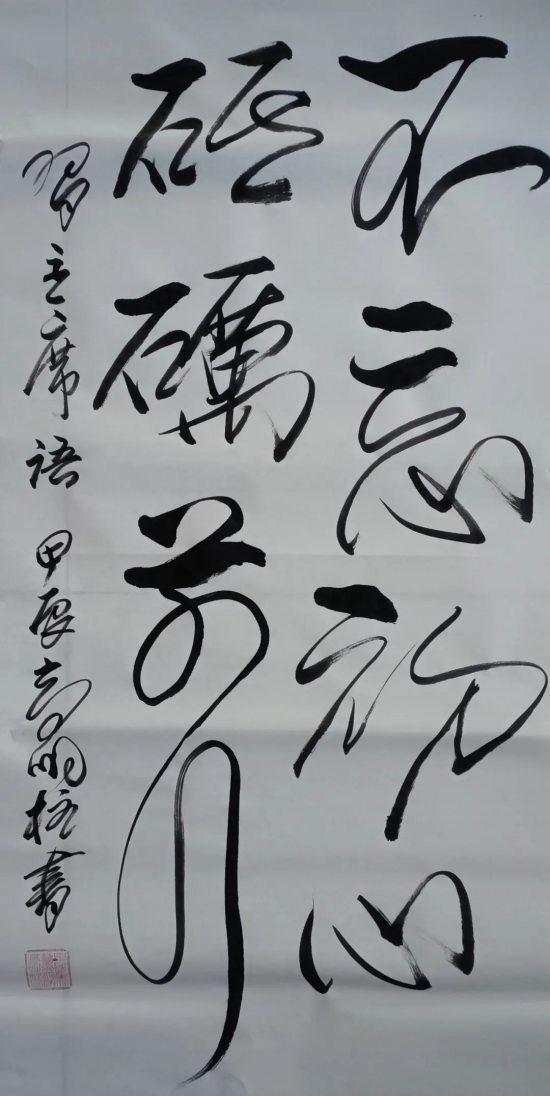 不忘初心
砥砺前行
习主席语 甲辰 高明柱书